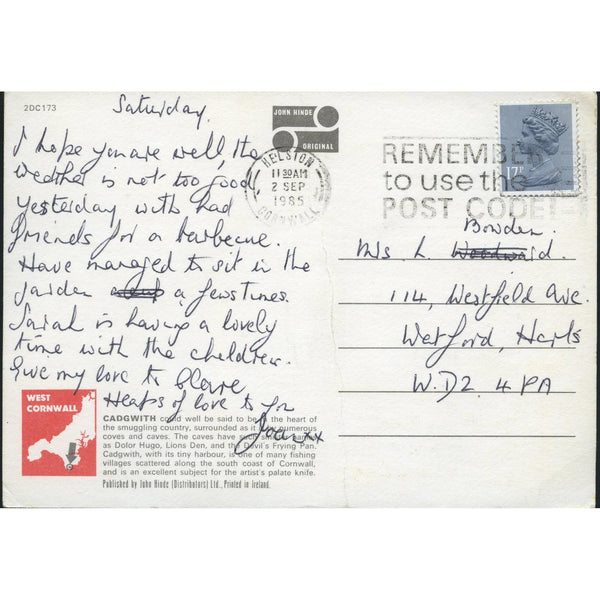 2DC173
Saturday.
I hope you are well, the
weather is not too good,
yesterday with had
friends for a barbecue.
Have managed to sit in the
garden a few times.
Sarah is having a lovely
time with the children.
Give my love to Clare
Heaps of love to you
Joan xx
JOHN HINDE
ORIGINAL
HELSTON
11 30 AM
2 SEP
1985
CORNWALL
REMEMBER
to use the
POST CODE!
17P
Bowden
Mrs L. Woodward.
114, Westfield Ave.
Watford, Herts
W.D2 4PA
WEST
CORNWALL
CADGWITH could well be said to be in the heart of
the smuggling country, surrounded as it is by numerous
coves and caves. The caves have such names
as Dolor Hugo, Lions Den, and the Devil's Frying Pan.
Cadgwith, with its tiny harbour, is one of many fishing
villages scattered along the south coast of Cornwall,
and is an excellent subject for the artist's palate knife.
Published by John Hinde (Distributors) Ltd., Printed in Ireland.